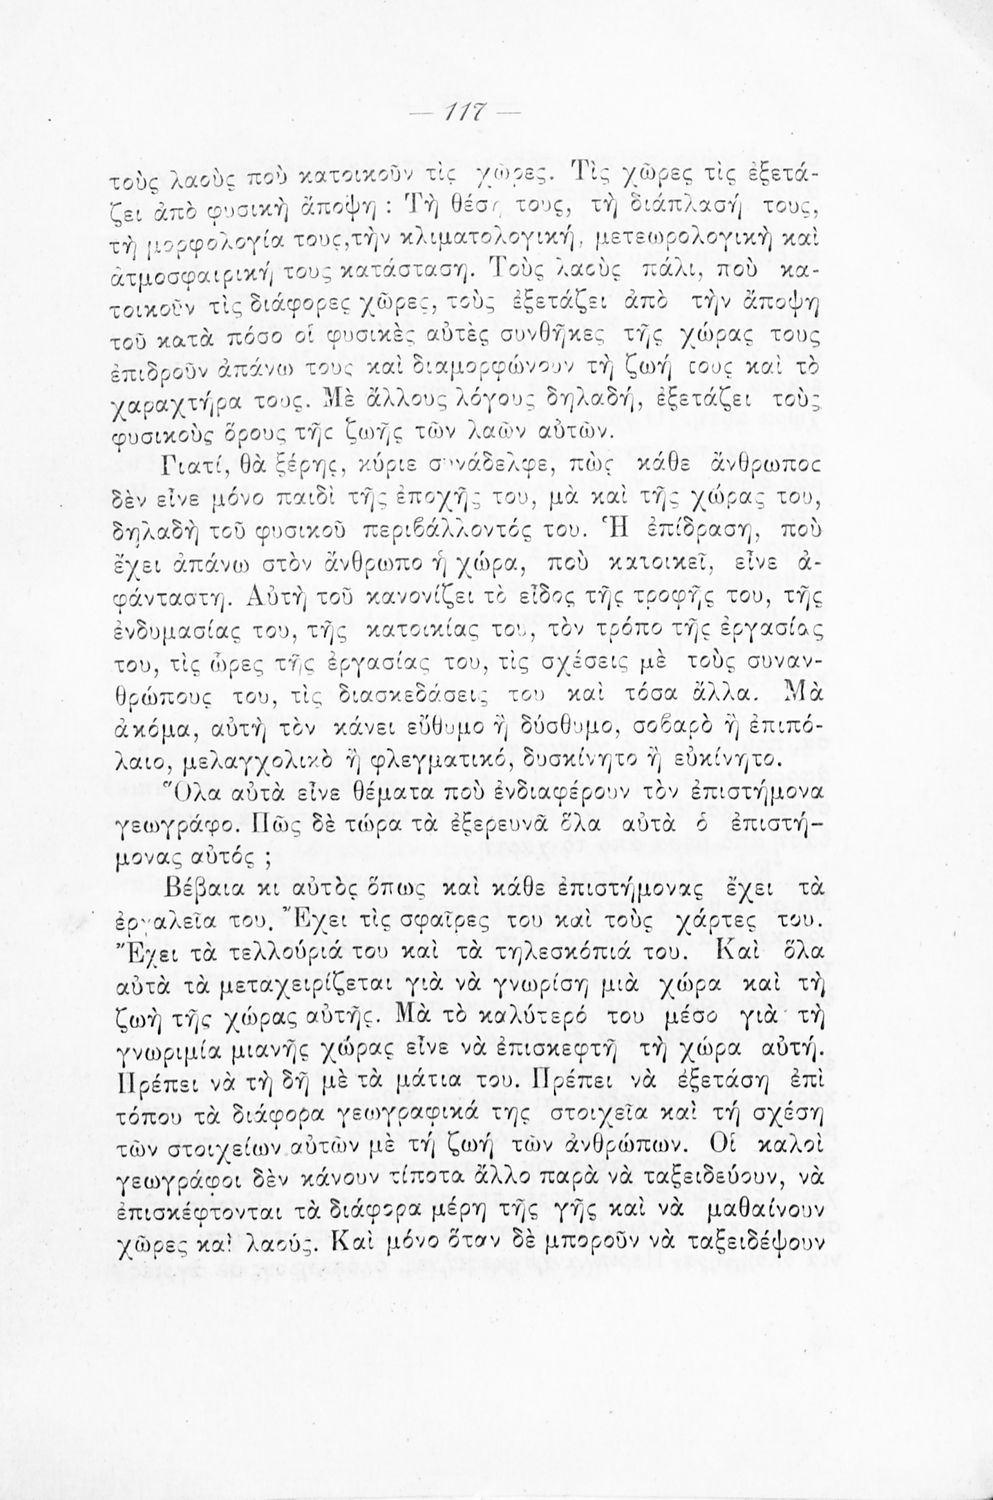 — 117 —
τοὺς λαοὺς ποὺ κατοικοῦν τὶς χῶρες. Τὶς χῶρες τὶς ἐξετά-
ζει ἀπὸ φυσικὴ ἄποψη : Τὴ θέση τους, τὴ διάπλασή τους,
τὴ μορφολογία τους,τὴν κλιματολογική, μετεωρολογικὴ καὶ
ἀτμοσφαιρική τους κατάσταση. Τοὺς λαοὺς πάλι, ποὺ κα-
τοικοῦν τὶς διάφορες χῶρες, τοὺς ἐξετάζει ἀπὸ τὴν ἄποψη
τοῦ κατὰ πόσο οἱ φυσικὲς αὐτὲς συνθῆκες τῆς χώρας τους
ἐπιδροῦν ἀπάνω τους καὶ διαμορφώνουν τὴ ζωή τους καὶ τὸ
χαραχτήρα τους. Μὲ ἄλλους λόγους δηλαδή, ἐξετάζει τοὺς
φυσικοὺς ὅρους τῆς ζωῆς τῶν λαῶν αὐτῶν.
Γιατί, θὰ ξέρης, κύριε συνάδελφε, πὼς κάθε ἄνθρωπος
δὲν εἶνε μόνο παιδὶ τῆς ἐποχῆς του, μὰ καὶ τῆς χώρας του,
δηλαδὴ τοῦ φυσικοῦ περιβάλλοντός του. Ἡ ἐπίδραση, ποὺ
ἔχει ἀπάνω στὸν ἄνθρωπο ἡ χώρα, ποὺ κατοικεῖ, εἶνε ἀ-
φάνταστη. Αὐτὴ τοῦ κανονίζει τὸ εἶδος τῆς τροφῆς του, τῆς
ἐνδυμασίας του, τῆς κατοικίας του, τὸν τρόπο τῆς ἐργασίας
του, τὶς ὧρες τῆς ἐργασίας του, τὶς σχέσεις μὲ τοὺς συναν-
θρώπους του, τὶς διασκεδάσεις του καὶ τόσα ἄλλα. Μὰ
ἀκόμα, αὐτὴ τὸν κάνει εὔθυμο ἢ δύσθυμο, σοβαρὸ ἢ ἐπιπό-
λαιο, μελαγχολικὸ ἢ φλεγματικό, δυσκίνητο ἢ εὐκίνητο.
Ὅλα αὐτὰ εἶνε θέματα ποὺ ἐνδιαφέρουν τὸν ἐπιστήμονα
γεωγράφο. Πῶς δὲ τώρα τὰ ἐξερευνᾶ ὅλα αὐτὰ ὁ ἐπιστή-
μονας αὐτός ;
Βέβαια κι αὐτὸς ὅπως καὶ κάθε ἐπιστήμονας ἔχει τὰ
ἐργαλεῖα του. Ἔχει τὶς σφαῖρες του καὶ τοὺς χάρτες του.
Ἔχει τὰ τελλούριά του καὶ τὰ τηλεσκόπιά του. Καὶ ὅλα
αὐτὰ τὰ μεταχειρίζεται γιὰ νὰ γνωρίση μιὰ χώρα καὶ τὴ
ζωὴ τῆς χώρας αὐτῆς. Μὰ τὸ καλύτερό του μέσο γιὰ τὴ
γνωριμία μιανῆς χώρας εἶνε νὰ ἐπισκεφτῆ τὴ χώρα αὐτή.
Πρέπει νὰ τὴ δῆ μὲ τὰ μάτια του. Πρέπει νὰ ἐξετάση ἐπὶ
τόπου τὰ διάφορα γεωγραφικά της στοιχεῖα καὶ τή σχέση
τῶν στοιχείων αὐτῶν μὲ τή ζωή τῶν ἀνθρώπων. Οἱ καλοὶ
γεωγράφοι δὲν κάνουν τίποτα ἄλλο παρὰ νὰ ταξειδεύουν, νὰ
ἐπισκέφτονται τὰ διάφορα μέρη τῆς γῆς καὶ νὰ μαθαίνουν
χῶρες καὶ λαούς. Καὶ μόνο ὅταν δὲ μποροῦν νὰ ταξειδέψουν